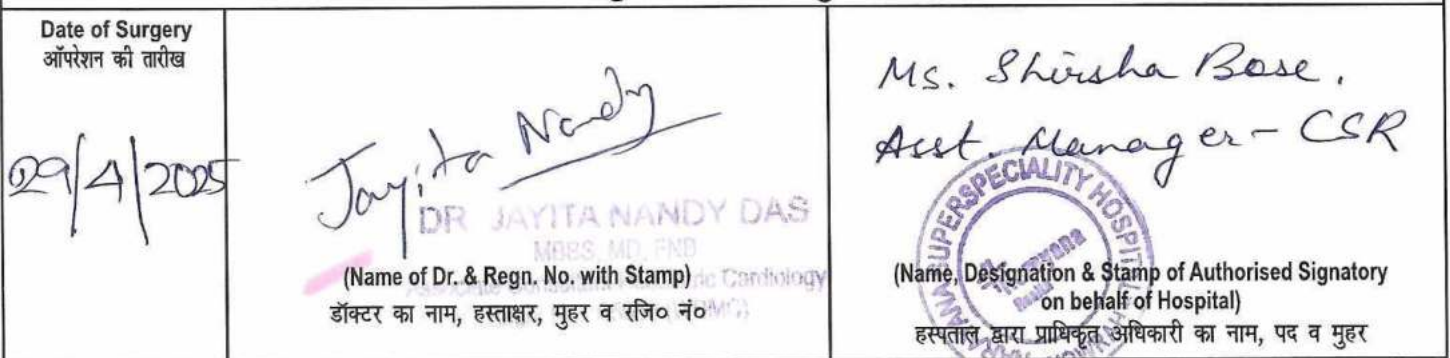 Date of Surgery
ऑपरेशन की तारीख
29/4/2025
Jayita Nandy
DR JAYITA NANDY DAS
MBBS, MD, FNB
(Name of Dr. & Regn. No. with Stamp)
Cardiology
डॉक्टर का नाम, हस्ताक्षर, मुहर व रजि० नं०
Ms. Shirsha Bose.
Asst. Manager - CSR
SUPERSPECIALITY HOSPITAL
Narayana
(Name, Designation & Stamp of Authorised Signatory
on behalf of Hospital)
हस्पताल द्वारा प्राधिकृत अधिकारी का नाम, पद व मुहर